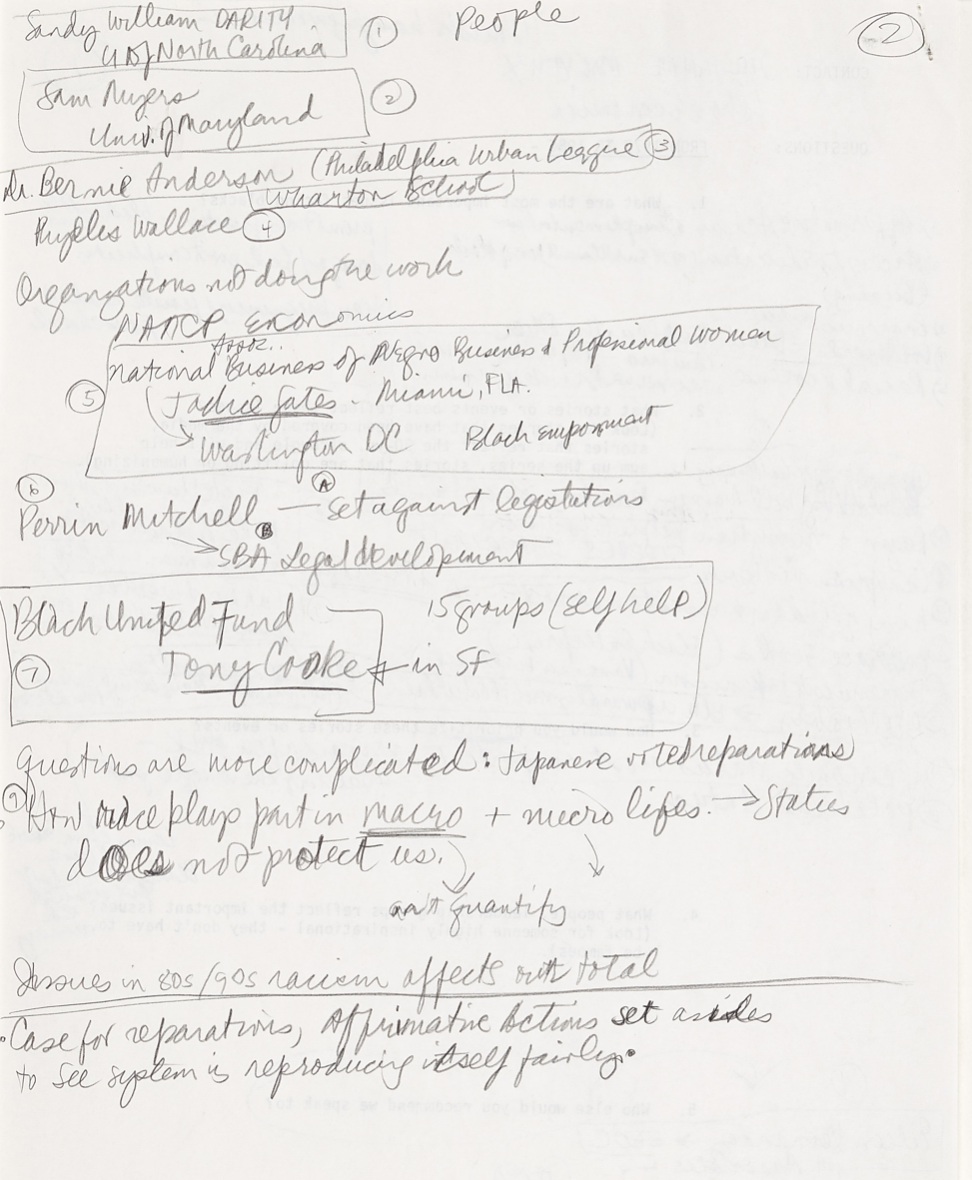 People
2
Sandy William DARITY 1
U of North Carolina
Sam Myers 2
Univ. of Maryland
Dr. Bernie Anderson (Philadelphia Urban League 3
(Wharton School)
Phyllis Wallace 4
Organizations not doing the work
NAACP, Economics
Assoc..
national Business of Negro Business & Professional Women
5 Jackie Gates - Miami, FLA.
Washington DC Black empowerment
6 A
Perrin Mitchell — set against legislations
B
SBA Legal development
Black United Fund 15 groups (self help)
7 Tony Cooke in SF
Questions are more complicated: Japanese voted reparations
How race plays part in macro + micro lifes. → Status
does not protect us.
can't quantify
Issues in 80s/90s racism affects our total
• Case for reparations, Affirmative Actions set asides
to see system is reproducing itself fairly.